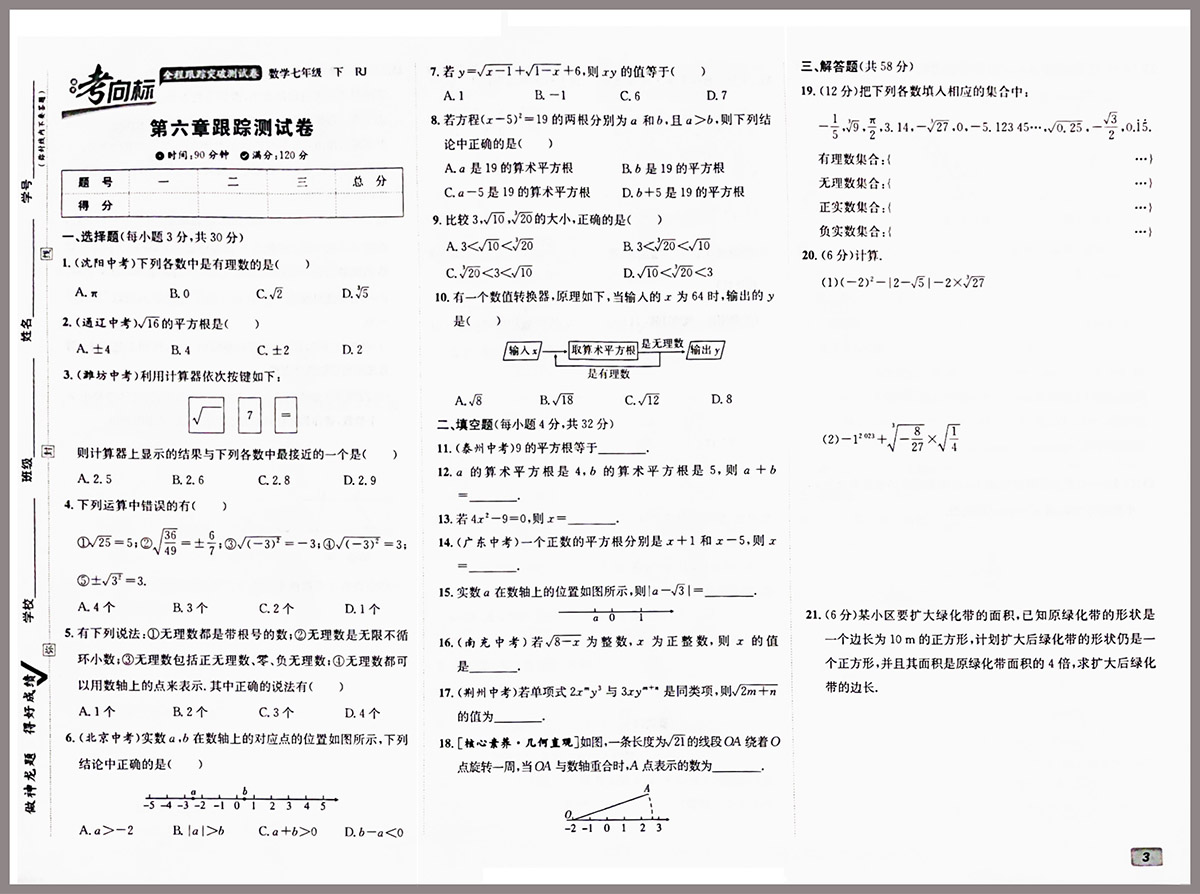 学号
（弥封线内不要答题）
线
姓名
封
班级
学校
弥
做神龙题 得好成绩
考向标 全程跟踪突破测试卷 数学七年级 下 RJ
第六章跟踪测试卷
时间:90分钟 满分:120分
题 号 一 二 三 总 分
得 分
一、选择题(每小题3分,共30分)
1.(沈阳中考)下列各数中是有理数的是( )
A.π B.0 C.√2 D.∛5
2.(通辽中考)√16的平方根是( )
A.±4 B.4 C.±2 D.2
3.(潍坊中考)利用计算器依次按键如下:
√ 7 =
则计算器上显示的结果与下列各数中最接近的一个是( )
A.2.5 B.2.6 C.2.8 D.2.9
4.下列运算中错误的有( )
①√25=5;②√(36/49)=±6/7;③√(-3)²=-3;④√(-3)²=3;
⑤±√3²=3.
A.4个 B.3个 C.2个 D.1个
5.有下列说法:①无理数都是带根号的数;②无理数是无限不循
环小数;③无理数包括正无理数、零、负无理数;④无理数都可
以用数轴上的点来表示.其中正确的说法有( )
A.1个 B.2个 C.3个 D.4个
6.(北京中考)实数a,b在数轴上的对应点的位置如图所示,下列
结论中正确的是( )
a b
-5 -4 -3 -2 -1 0 1 2 3 4 5
A.a>-2 B.|a|>b C.a+b>0 D.b-a<0
7.若y=√x-1+√1-x+6,则xy的值等于( )
A.1 B.-1 C.6 D.7
8.若方程(x-5)²=19的两根分别为a和b,且a>b,则下列结
论中正确的是( )
A.a是19的算术平方根 B.b是19的平方根
C.a-5是19的算术平方根 D.b+5是19的平方根
9.比较3,√10,∛20的大小,正确的是( )
A.3<√10<∛20 B.3<∛20<√10
C.∛20<3<√10 D.√10<∛20<3
10.有一个数值转换器,原理如下,当输入的x为64时,输出的y
是( )
输入x 取算术平方根 是无理数 输出y
是有理数
A.√8 B.√18 C.√12 D.8
二、填空题(每小题4分,共32分)
11.(泰州中考)9的平方根等于______.
12.a的算术平方根是4,b的算术平方根是5,则a+b
=______.
13.若4x²-9=0,则x=______.
14.(广东中考)一个正数的平方根分别是x+1和x-5,则x
=______.
15.实数a在数轴上的位置如图所示,则|a-√3|=______.
a 0 1
16.(南充中考)若√8-x为整数,x为正整数,则x的值
是______.
17.(荆州中考)若单项式2xᵐy³与3xyᵐ⁺ⁿ是同类项,则√2m+n
的值为______.
18.[核心素养·几何直观]如图,一条长度为√21的线段OA绕着O
点旋转一周,当OA与数轴重合时,A点表示的数为______.
A
O
-2 -1 0 1 2 3
三、解答题(共58分)
19.(12分)把下列各数填入相应的集合中:
-1/5,∛9,π/2,3.14,-∛27,0,-5.123 45…,√0.25,-√3/2,0.1̇5̇.
有理数集合:{ …}
无理数集合:{ …}
正实数集合:{ …}
负实数集合:{ …}
20.(6分)计算.
(1)(-2)²-|2-√5|-2×∛27
(2)-1²⁰²³+∛(-8/27)×√(1/4)
21.(6分)某小区要扩大绿化带的面积,已知原绿化带的形状是
一个边长为10 m的正方形,计划扩大后绿化带的形状仍是一
个正方形,并且其面积是原绿化带面积的4倍,求扩大后绿化
带的边长.
3